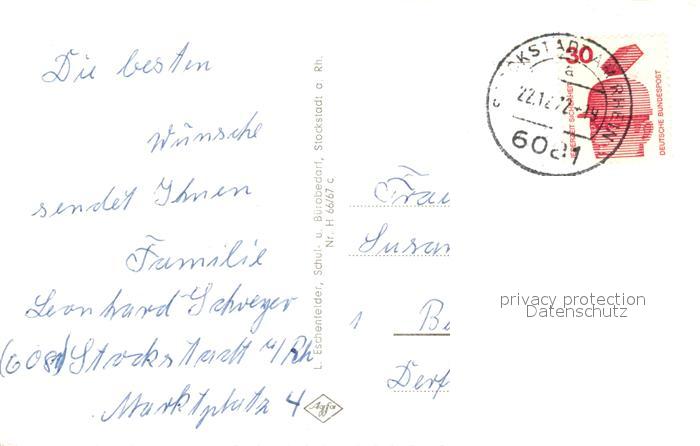 Die besten
Wünsche
sendet Ihnen
Familie
Leonhard
(6081) Stockstadt a/Rh
Marktplatz 4
L. Eschenfelder, Schul- u. Bürobedarf, Stockstadt a. Rh.
Nr. H 66/67 c
Agfa
30
STOCKSTADT AM RHEIN
a
22.12.72-19
6081
JEDERZEIT SICHERHEIT
DEUTSCHE BUNDESPOST
Frau
Susan
1 Be
privacy protection
Datenschutz